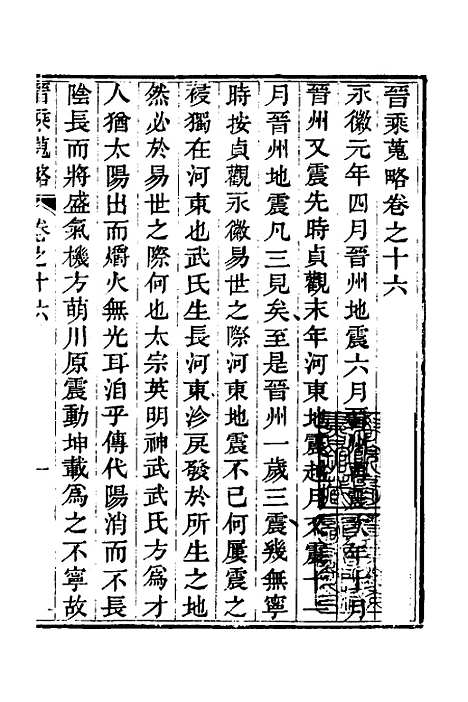 晉乘蒐略卷之十六
永徽元年四月晉州地震六月晉州地震六年十月
晉州又震先時貞觀末年河東地震越月又震十一
月晉州地震凡三見矣至是晉州一歲三震幾無寧
時按貞觀永徽易世之際河東地震不已何屢震之
祲獨在河東也武氏生長河東沴戾發於所生之地
然必於易世之際何也太宗英明神武武氏方爲才
人猶太陽出而爝火無光耳洎乎傳代陽消而不長
陰長而將盛氣機方萌川原震動坤載爲之不寧故
晉乘蒐略 卷之十六 一